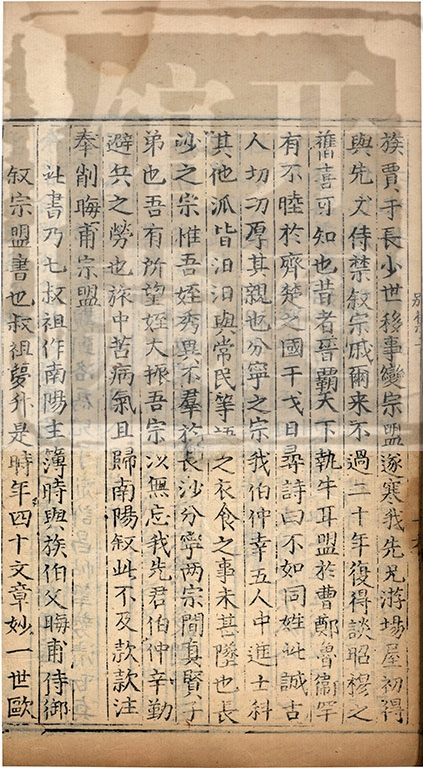 族賈于長少世移事變宗盟遂寒我先兄游場屋初得
與先丈侍禁叙宗戚爾来不過二十年復得談昭穆之
舊喜可知也昔者晉霸天下執牛耳盟於曹鄭魯衞罕
有不睦於齊楚之國干戈日尋詩曰不如同姓此誠古
人切切厚其親也分寧之宗我伯仲幸五人中進士科
其他泒皆汨汨與常民等語之衣食之事未甚墜也長
沙之宗惟吾姪秀異不羣於長沙分寧两宗間真賢子
弟也吾有所望姪大振吾宗以無忘我先君伯仲辛勤
避兵之勞也旅中苦病氣且歸南陽叙此不及款款注
奉削晦甫宗盟
此書乃七叔祖作南陽主簿時與族伯父晦甫侍御
叙宗盟書也叔祖夢升是時年四十文章妙一世歐